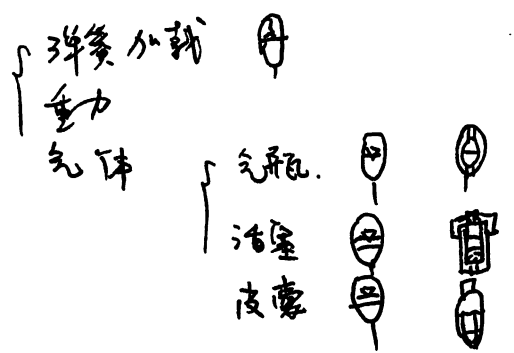 弹簧加载
重力
气体
气瓶.
活塞
皮囊